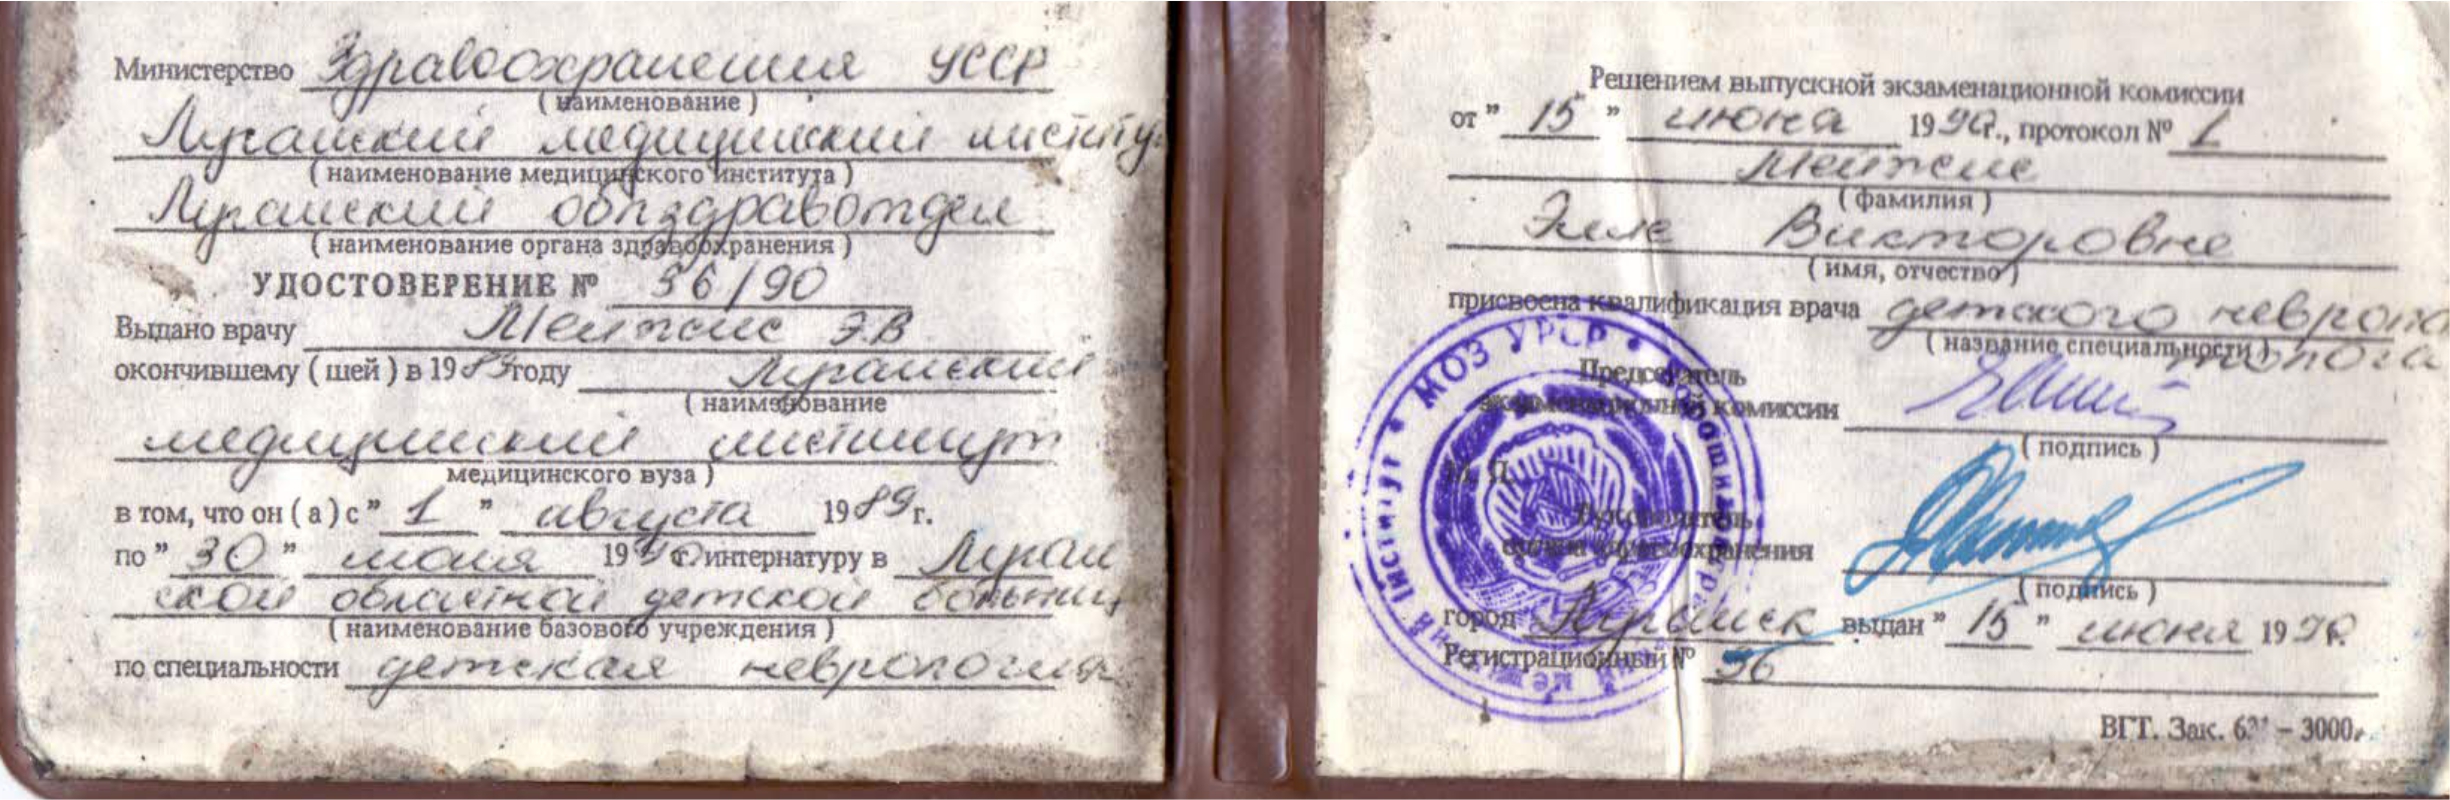 Министерство Здравоохранения УССР
( наименование )
Луганский медицинский институ
( наименование медицинского института )
Луганский облздравотдел
( наименование органа здравоохранения )
УДОСТОВЕРЕНИЕ № 36/90
Выдано врачу Мейтсис Э.В
окончившему ( шей ) в 1989 году Луганский
( наименование
медицинский институт
медицинского вуза )
в том, что он ( а ) с " 1 " августа 1989 г.
по " 30 " июня 1990 г. интернатуру в Луган
ской областной детской больниц
( наименование базового учреждения )
по специальности детская неврология
Решением выпускной экзаменационной комиссии
от " 15 " июня 1990г., протокол № 1
( фамилия )
Элле Викторовне
( имя, отчество )
присвоена квалификация врача детского невропа
( название специальности )
толога
Председатель
экзаменационной комиссии
( подпись )
М. П.
Руководитель
органа здравоохранения
( подпись )
город Луганск выдан " 15 " июня 1990г.
Регистрационный № 36
МОЗ УРСР
ВГТ. Зак. – 3000